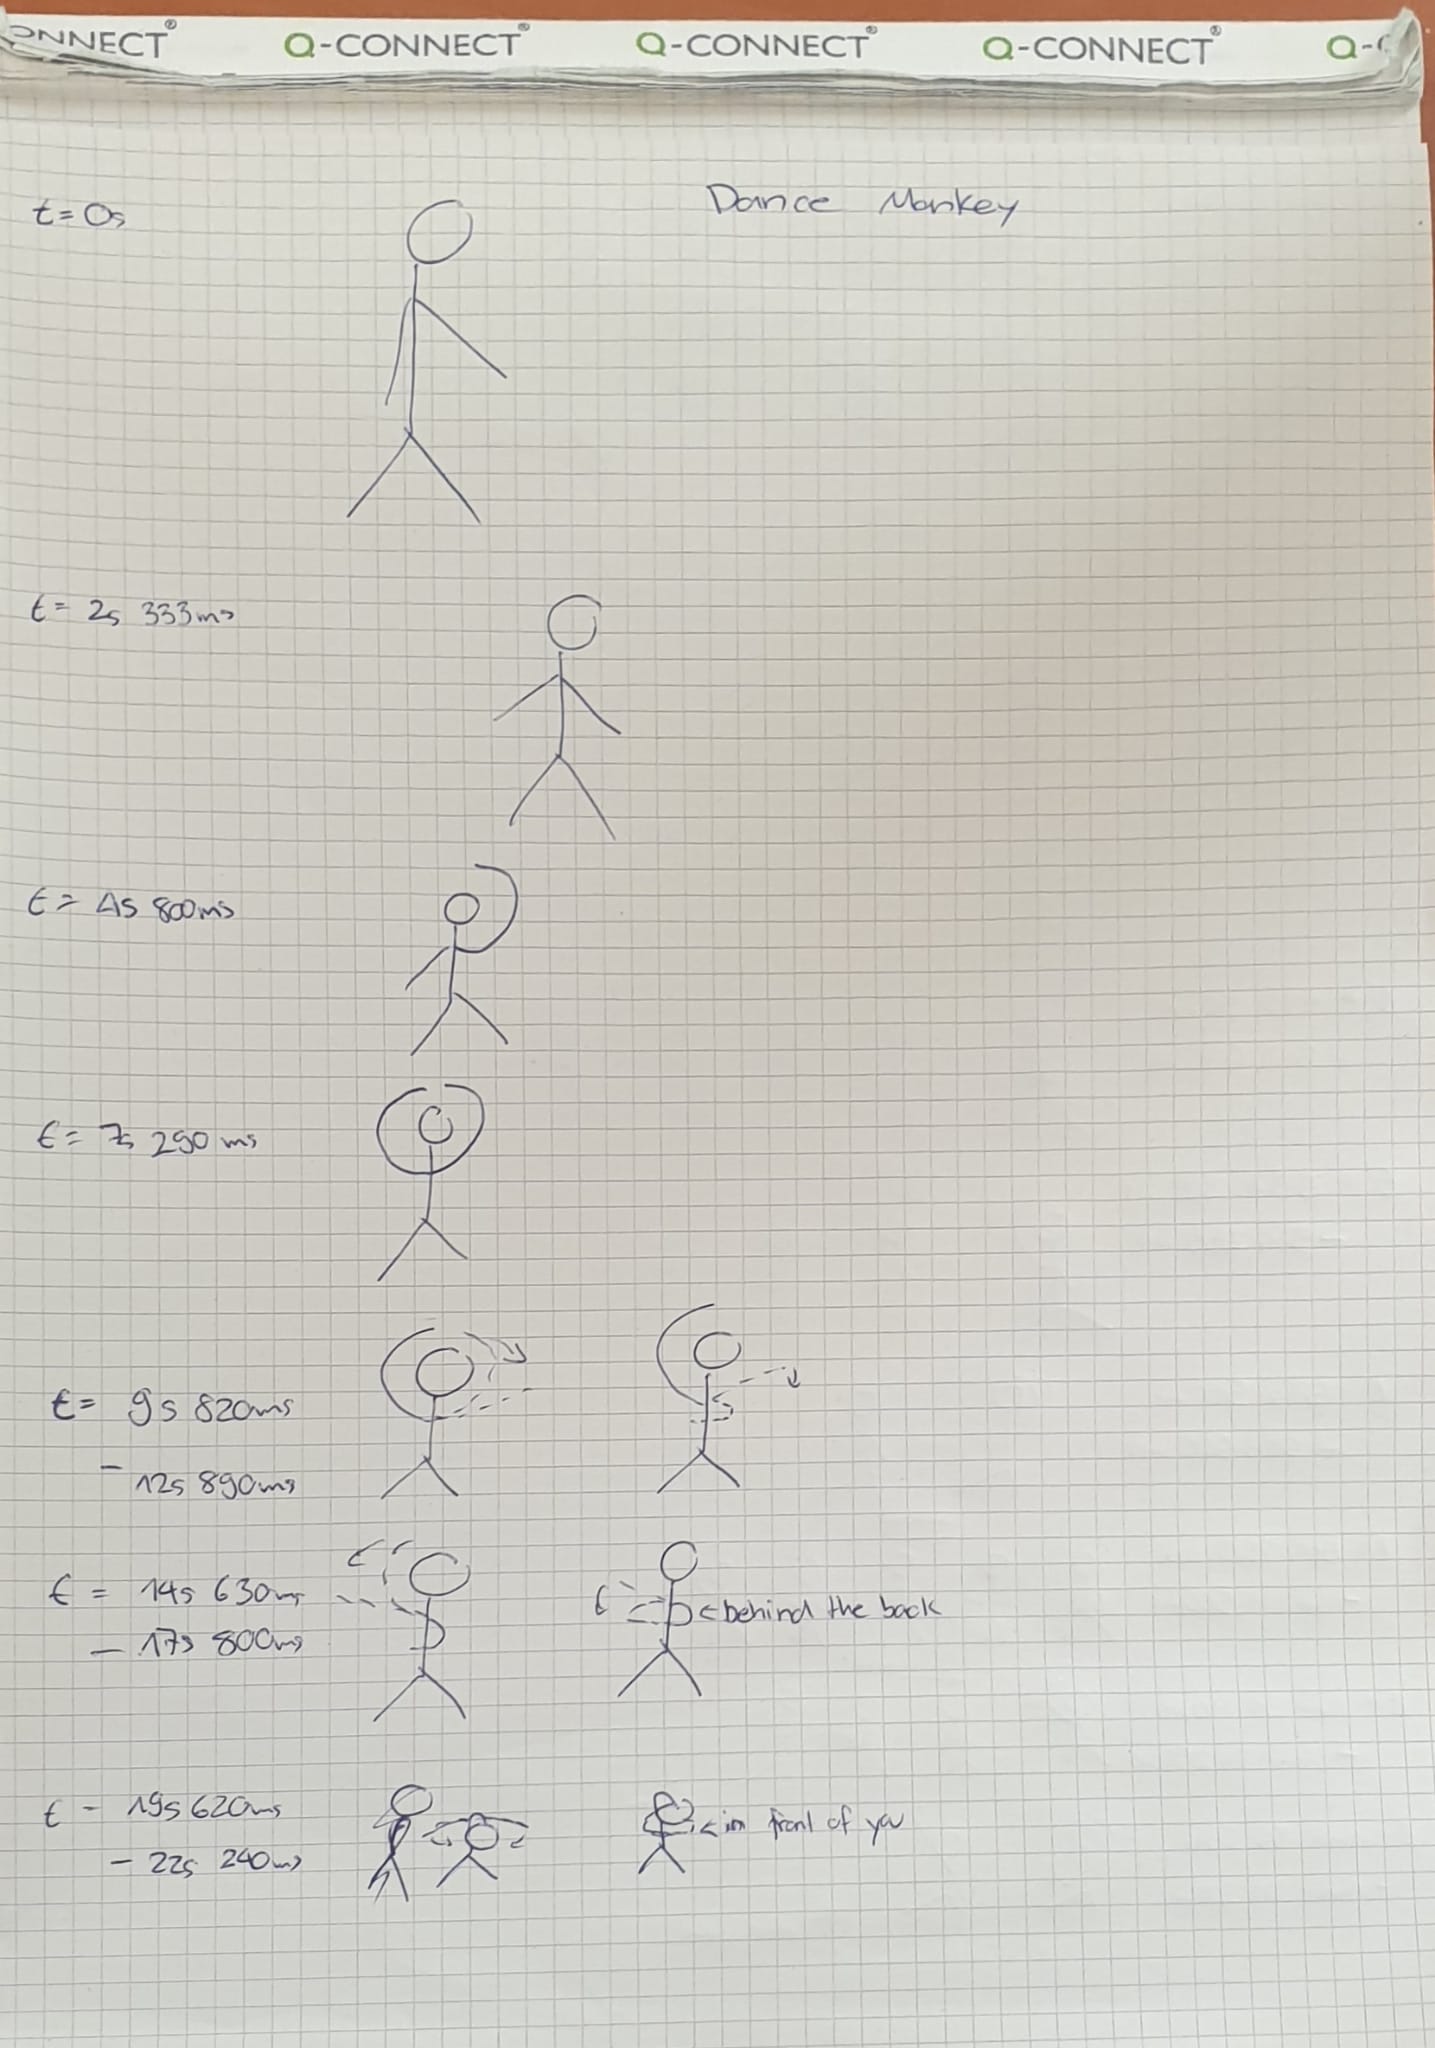 ONNECT® Q-CONNECT® Q-CONNECT® Q-CONNECT® Q-C
Dance Monkey
t=0s
t= 2s 333ms
t= 4s 800ms
t= 7s 290ms
t= 9s 820ms
- 12s 890ms
t= 14s 630ms
<behind the back
- 17s 800ms
t - 19s 620ms
<in front of you
- 22s 240ms